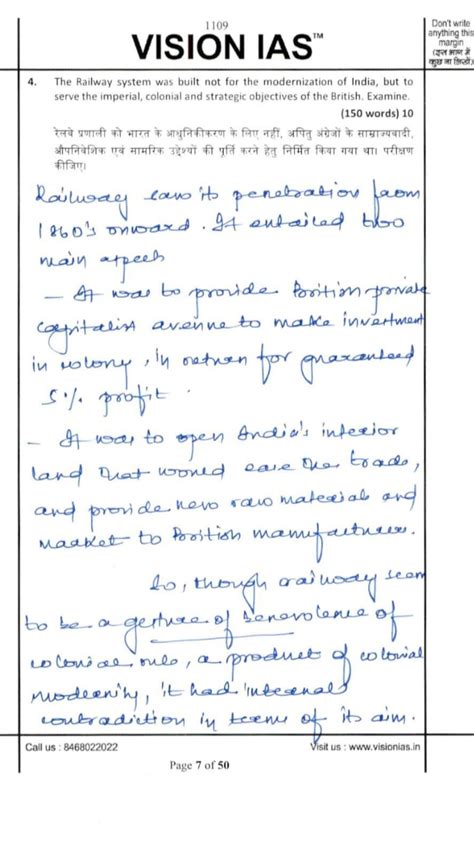 1109
VISION IAS™
Don't write
anything this
margin
(इस भाग में
कुछ ना लिखें)
4. The Railway system was built not for the modernization of India, but to
serve the imperial, colonial and strategic objectives of the British. Examine.
(150 words) 10
रेलवे प्रणाली को भारत के आधुनिकीकरण के लिए नहीं, अपितु अंग्रेजों के साम्राज्यवादी,
औपनिवेशिक एवं सामरिक उद्देश्यों की पूर्ति करने हेतु निर्मित किया गया था। परीक्षण
कीजिए।
Railway saw its penetration from
1860's onward. It entailed two
main aspects
- It was to provide British private
capitalist avenue to make investment
in colony, in return for guaranteed
5% profit.
- It was to open India's interior
land that would ease the trade,
and provide new raw materials and
market to British manufactures.
So, though railway seem
to be a gesture of benevolence of
colonial rule, a product of colonial
modernity, it had internal
contradiction in terms of its aim.
Call us : 8468022022
Visit us : www.visionias.in
Page 7 of 50